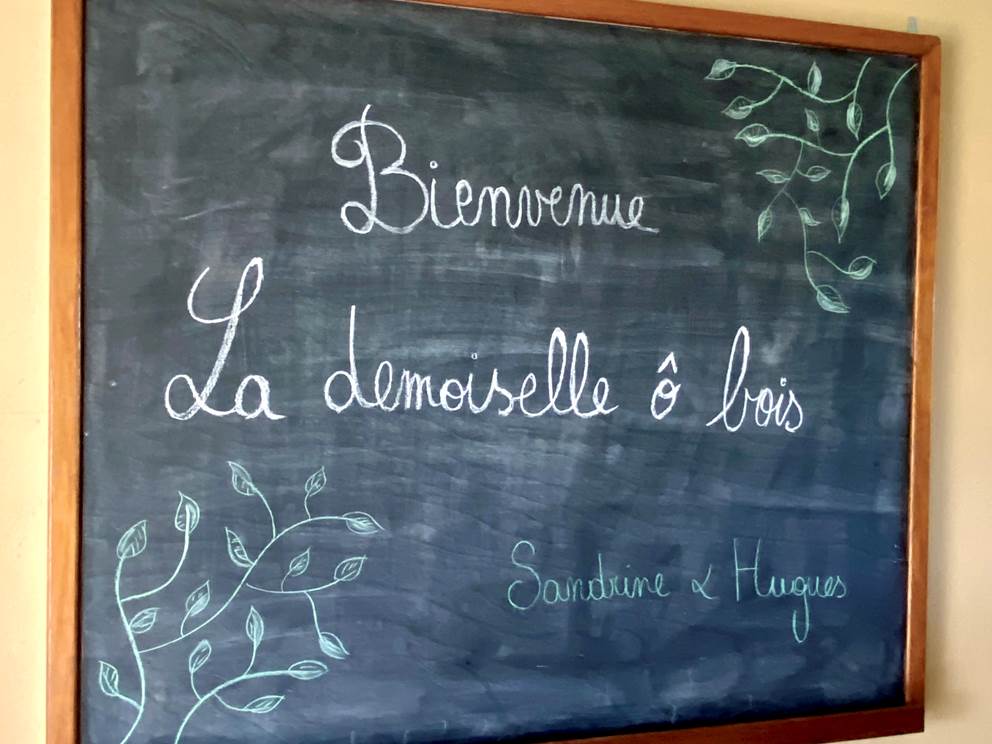 Bienvenue
La demoiselle ô bois
Sandrine & Hugues